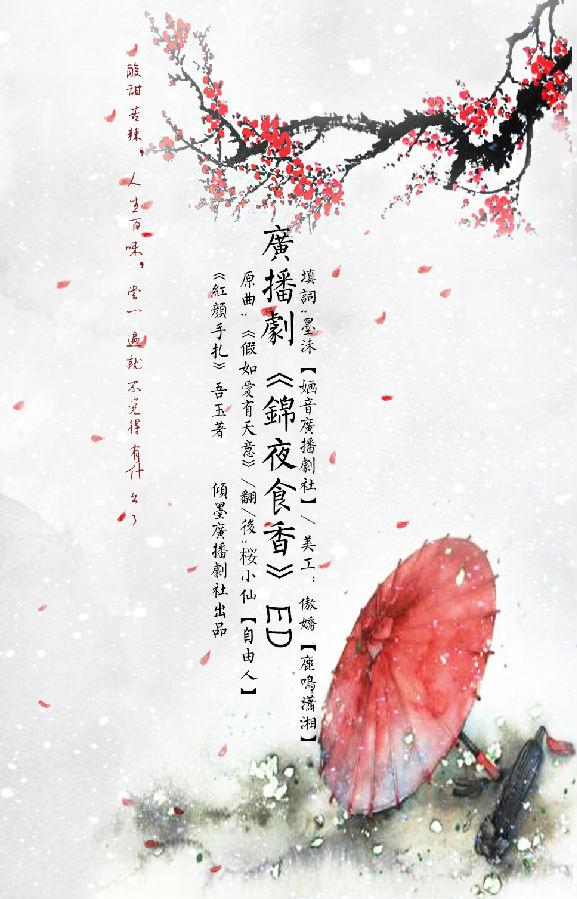 填詞:墨沫【婳音廣播劇社】\美工:傲嬌【鹿鳴瀟湘】
廣播劇《錦夜食香》ED
原曲:《假如愛有天意》\翻\後:桜小仙【自由人】
《紅顏手扎》吾玉著 傾墨廣播劇社出品
酸甜苦辣,人生百味,尝一遍就不觉得有什么了